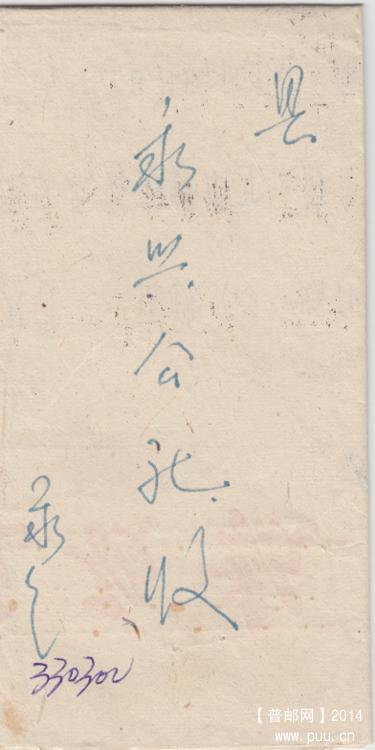 县
永兴公社收
永
330300
【普邮网】2014
www.puu.cn